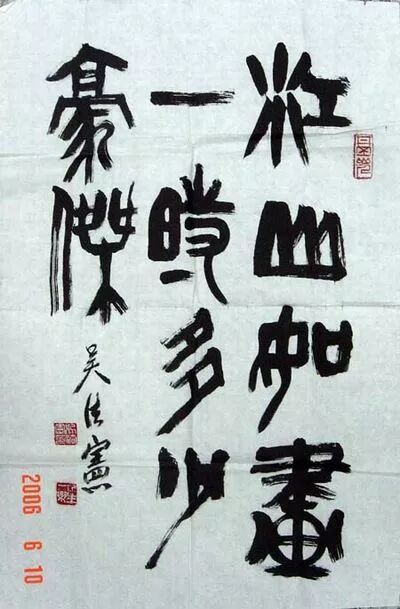 江山如畫
一時多少
豪傑
吴法憲
2006 6 10